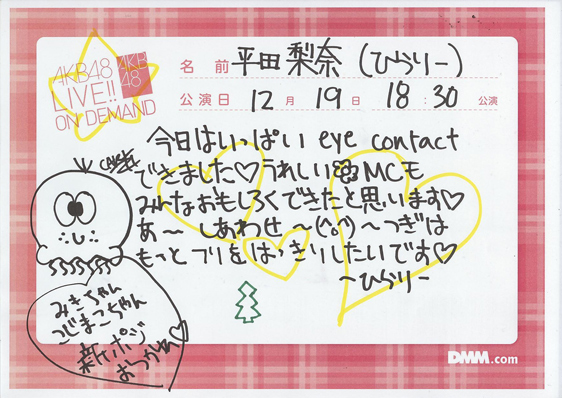 AKB48
LIVE!!
ON DEMAND
AKB
48
名前 平田梨奈(ひらりー)
公演日 12月19日 18:30 公演
今日はいっぱい eye contact
できました♡うれしいMCも
みんなおもしろくできたと思います♡
あ〜 しあわせ 〜(^o^)〜つぎは
もっと フリをはっきりしたいです♡
〜ひらりー
みきちゃん
こじまこちゃん
新ポジ
おつかれ♡
DMM.com